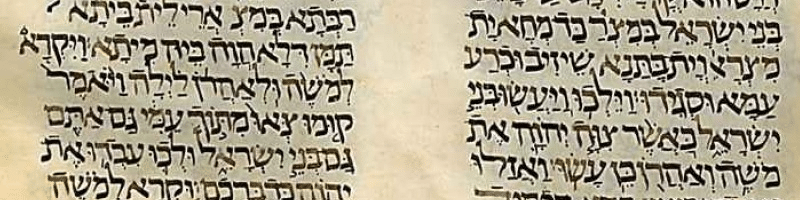 בני ישראל במצר כד מחא ית
מצראי וית בתנא שיזיב וכרע
עמא וסגידו וילכו ויעשו בני
ישראל כאשר צוה יהוה את
משה ואהרן כן עשו ואזלו
רבתא במצ ארי לית ביתא
תמן דלא הוה ביה מיתא ויקרא
למשה ולאהרן לילה ויאמר
קומו צאו מתוך עמי גם אתם
גם בני ישראל ולכו עבדו את
יהוה כדברכם וקרא למשה